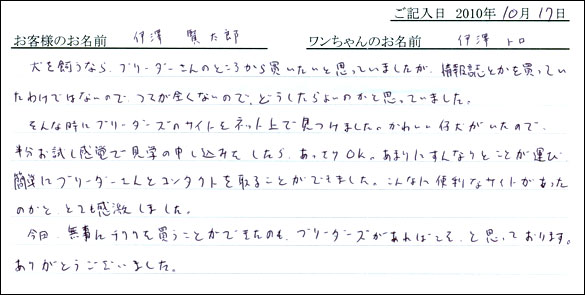 ご記入日 2010年 10月 17日
お客様のお名前 伊澤 賢太郎 ワンちゃんのお名前 伊澤 トロ
犬を飼うなら、ブリーダーさんのところから買いたいと思っていましたが、情報誌とかを買ってい
たわけではないので、つてが全くないので、どうしたらよいのかと思っていました。
そんな時にブリーダーズのサイトをネット上で見つけました。かわいい仔犬がいたので、
半分お試し感覚で見学の申し込みをしたら、あっさりOK。あまりにすんなりとことが運び、
簡単にブリーダーさんとコンタクトを取ることができました。こんなに便利なサイトがあった
のかと、とても感激しました。
今回、無事に を買うことができたのも、ブリーダーズがあればこそ、と思っております。
ありがとうございました。